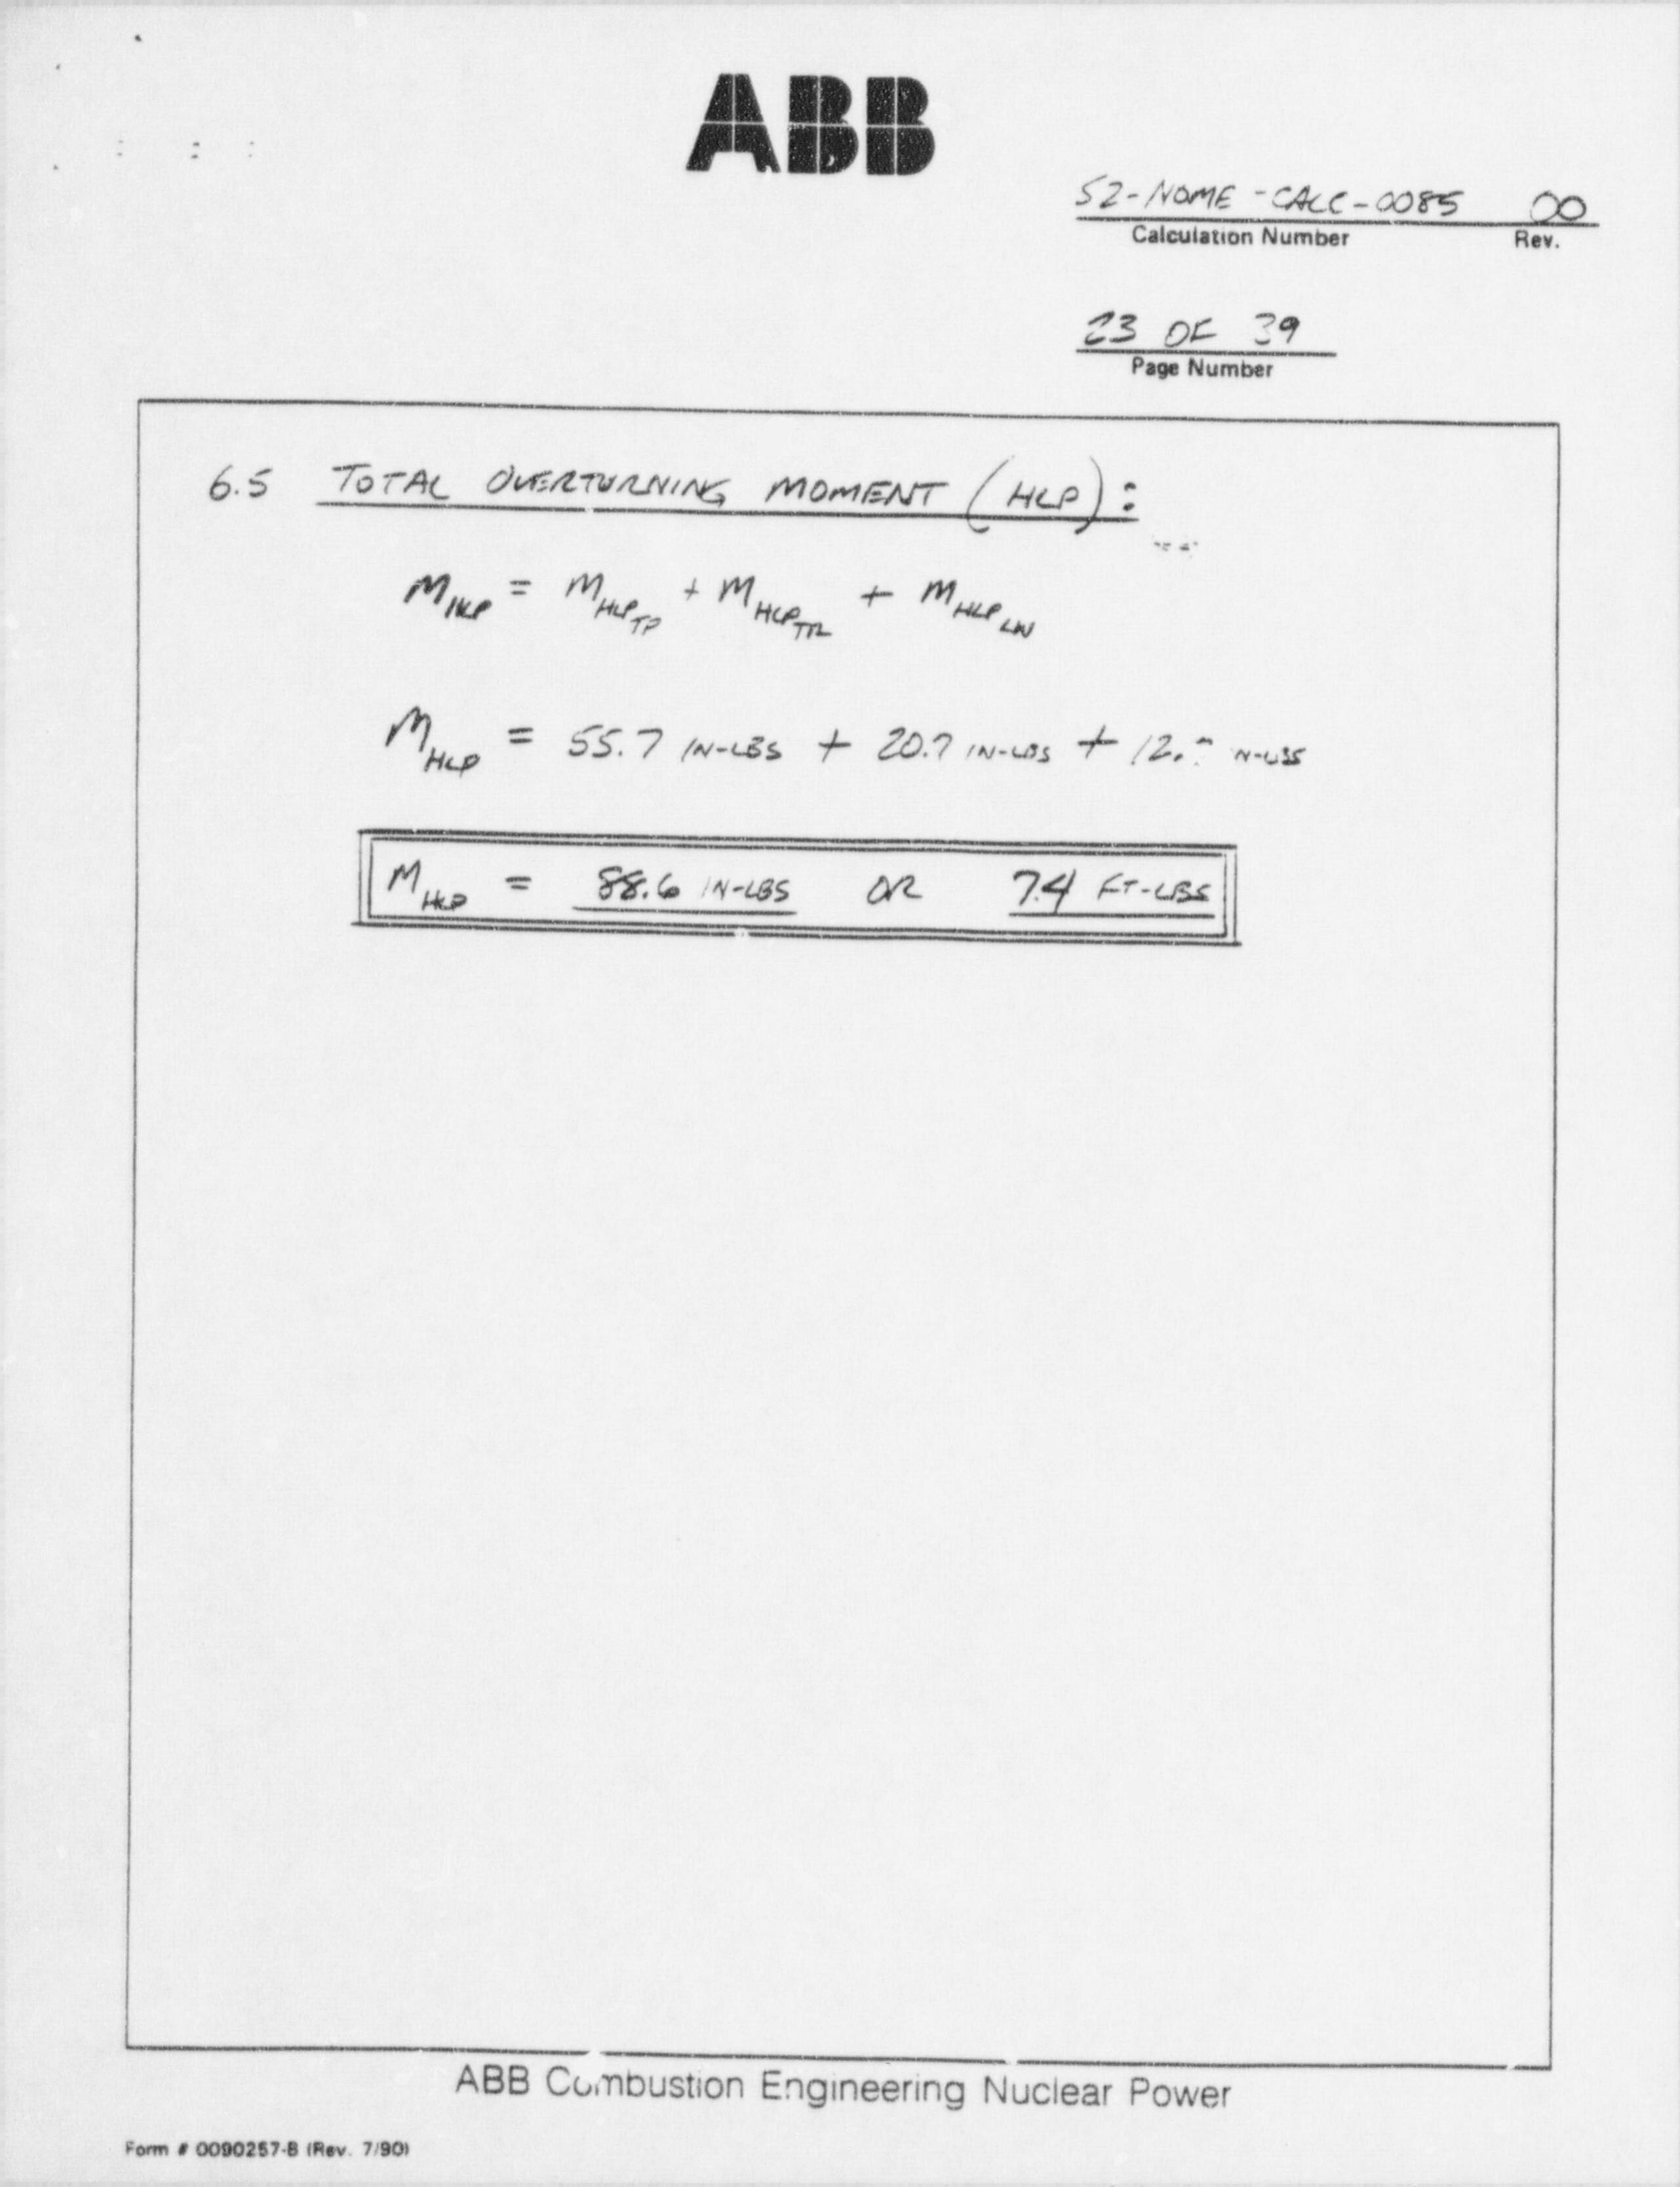 ABB
S2-NOME-CALC-0085 00
Calculation Number Rev.
23 OF 39
Page Number
6.5 TOTAL OVERTURNING MOMENT (HLP):
M HLP = M HLP TP + M HLP TTL + M HLP LW
M HLP = 55.7 IN-LBS + 20.7 IN-LBS + IN-LBS
M HLP = 88.6 IN-LBS OR 7.4 FT-LBS
ABB Combustion Engineering Nuclear Power
Form # 0090257-B (Rev. 7/90)